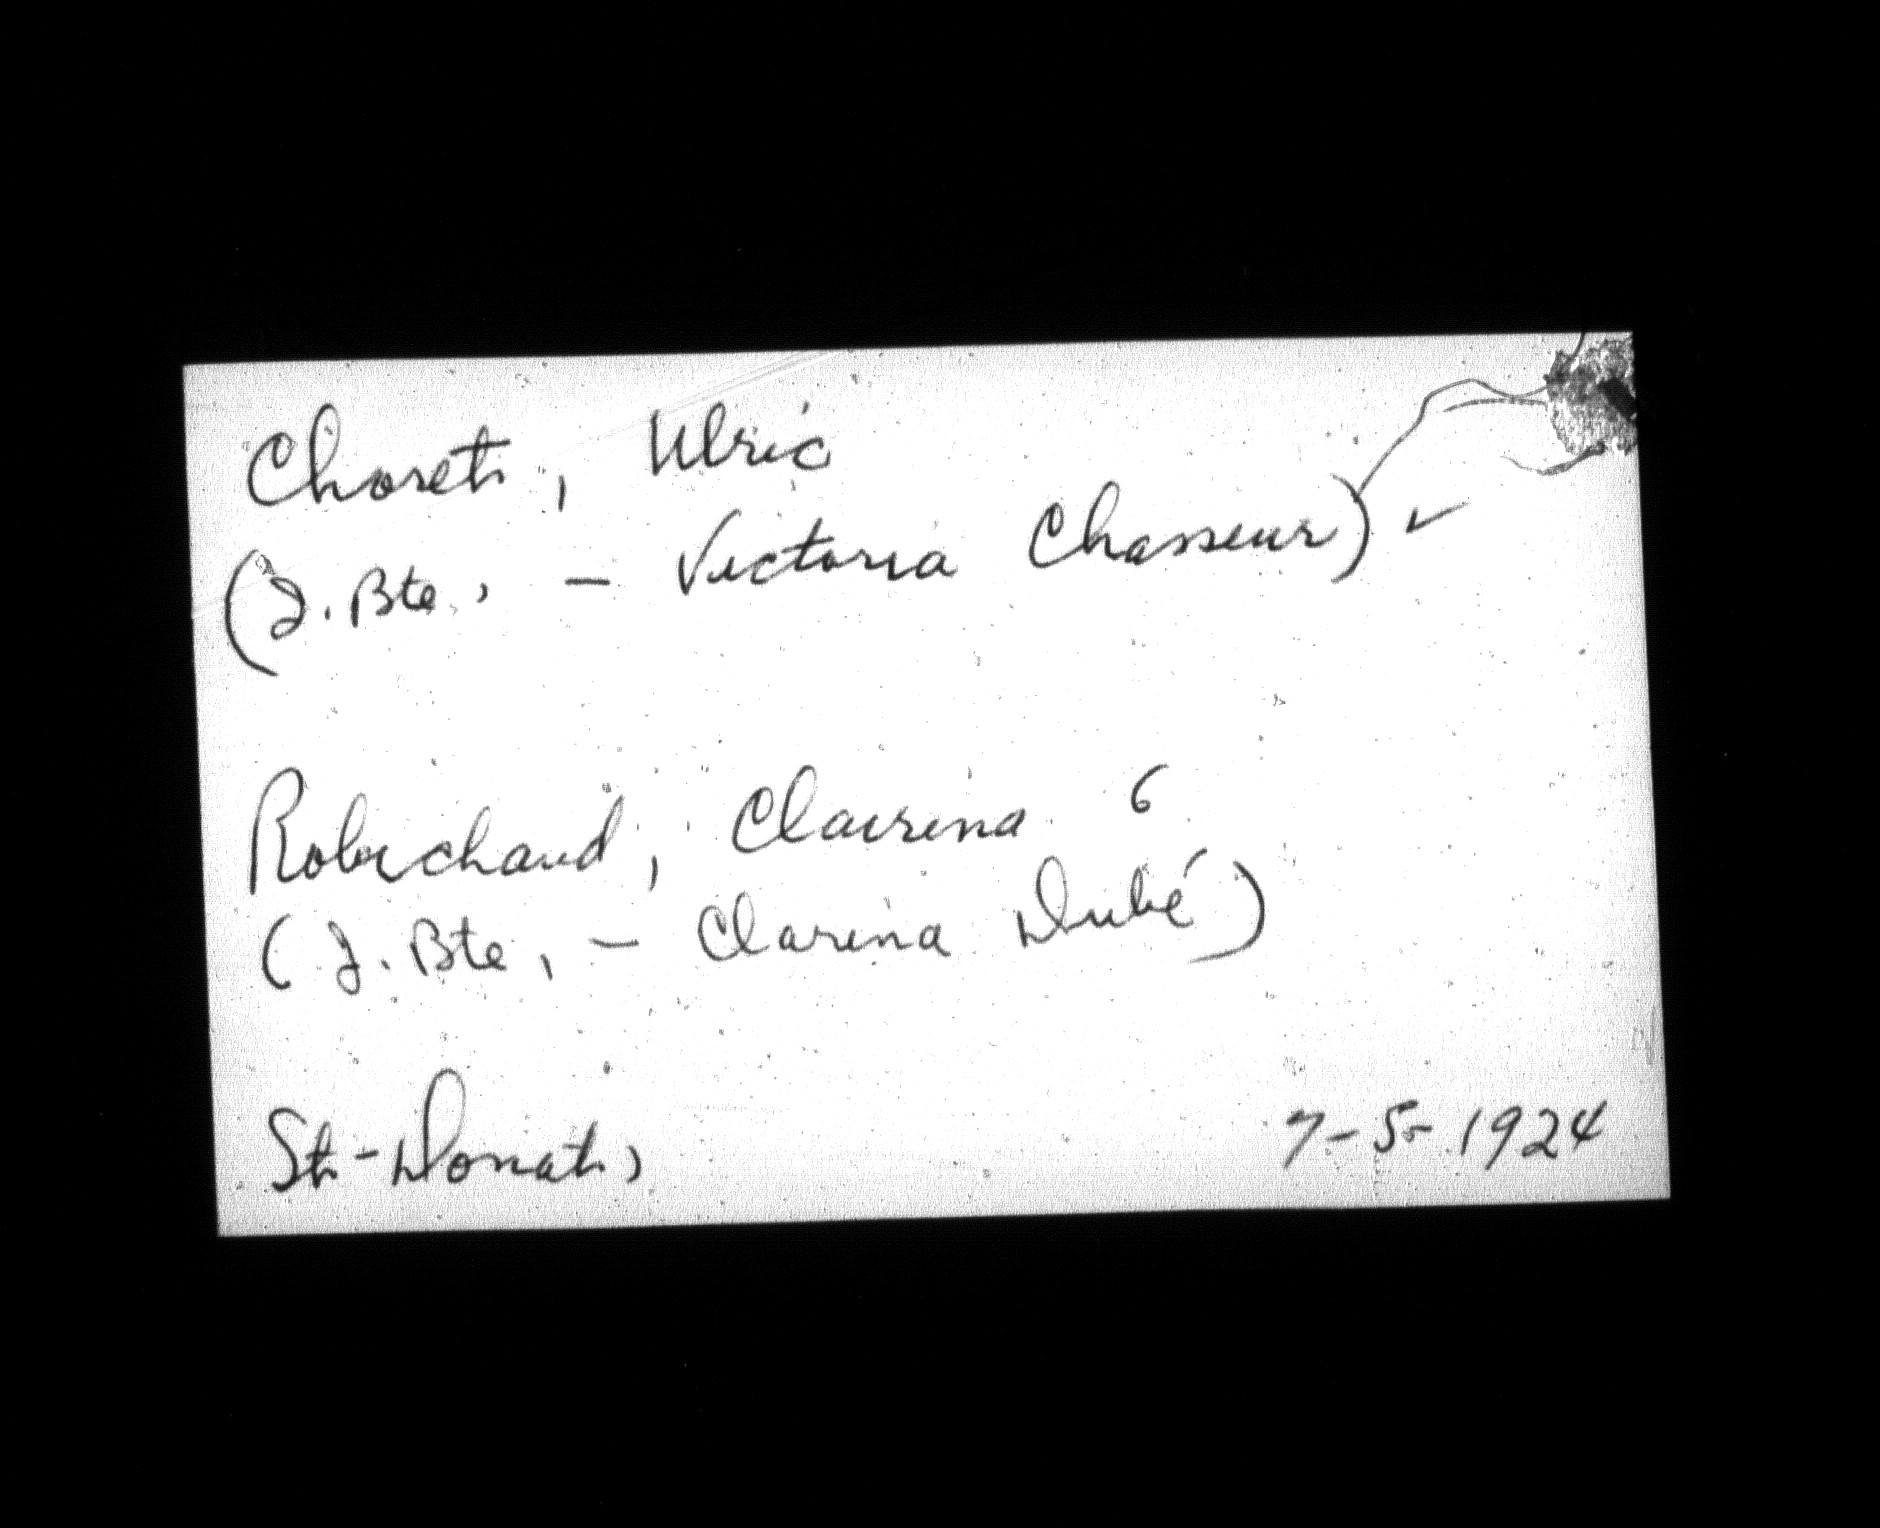 Choret, Ulric
(J. Bte, - Victoria Chasseur) ✓
Robichaud, Clairina 6
(J. Bte, - Clarina Dubé)
St-Donat, 7-5-1924